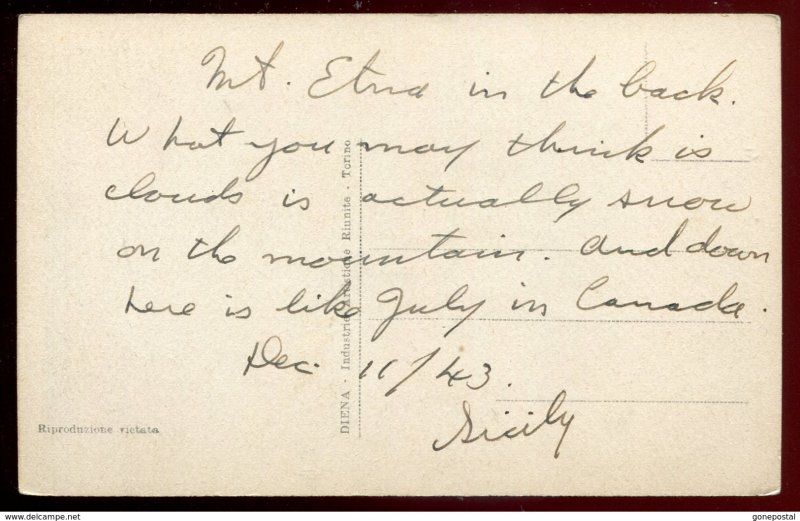 Mt. Etna in the back.
What you may think is
clouds is actually snow
on the mountain. And down
here is like July in Canada.
Dec. 11/43.
Sicily
DIENA - Industrie Artistiche Riunite - Torino
Riproduzione vietata
gonepostal
www.delcampe.net